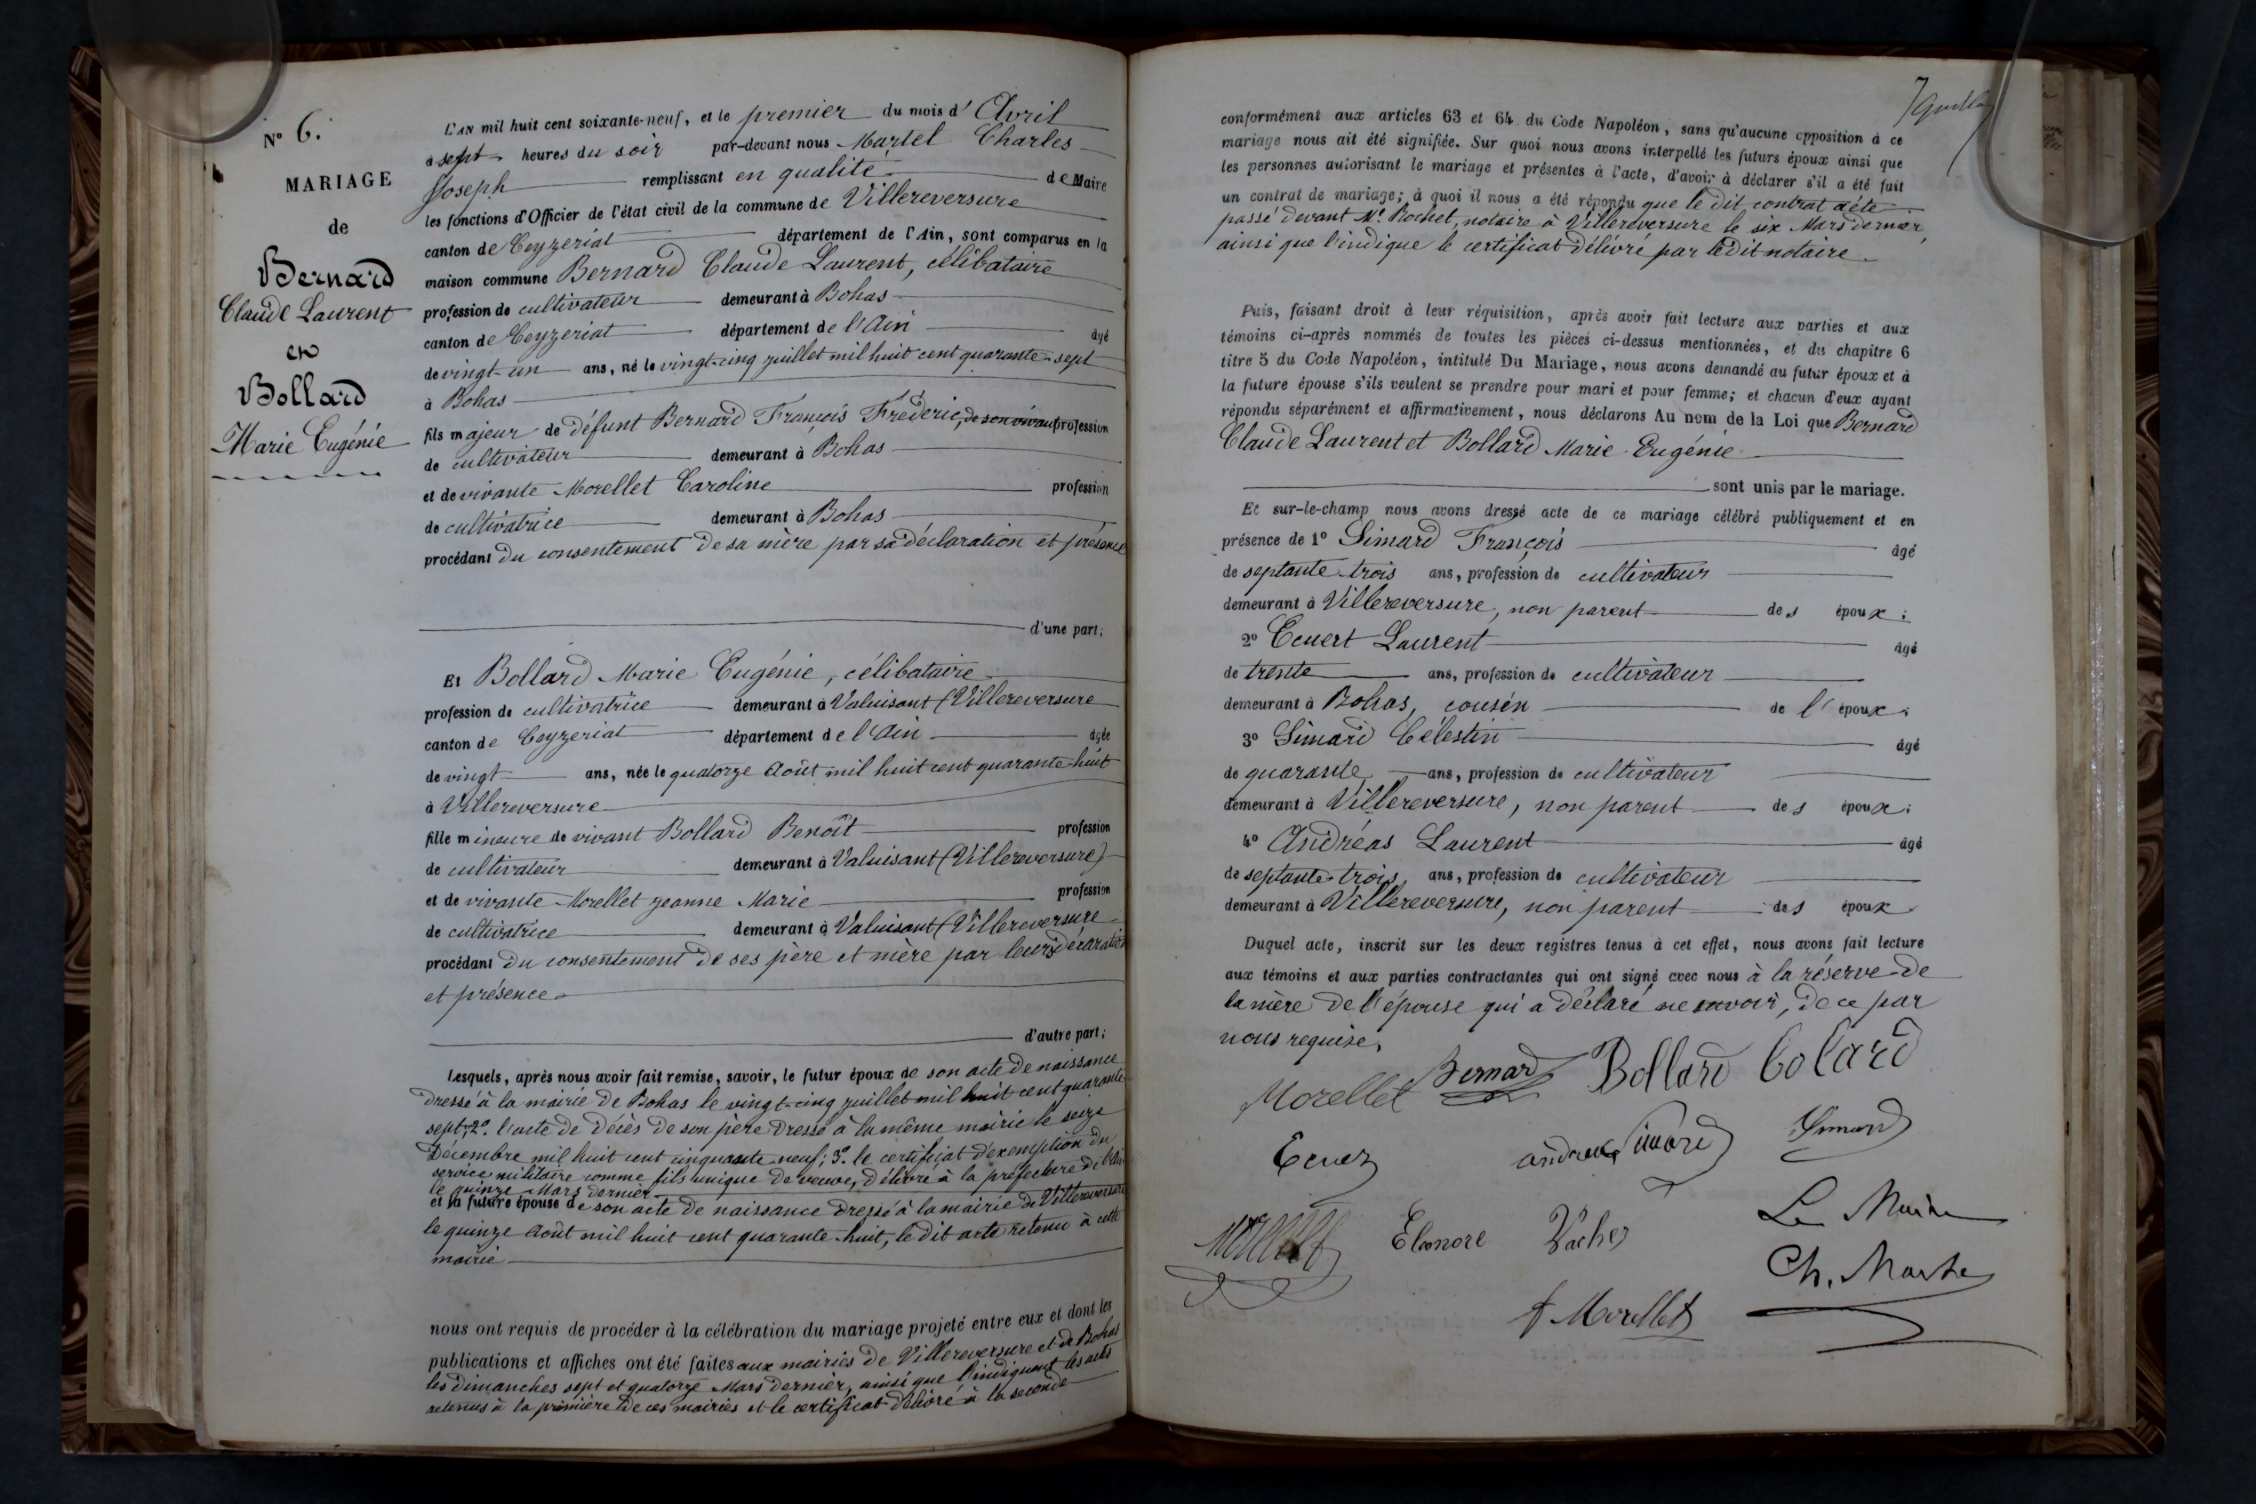 N° 6.
MARIAGE
de
Bernard
Claude Laurent
et
Bollard
Marie Eugénie
L'AN mil huit cent soixante-neuf, et le premier du mois d'Avril
à sept heures du soir par-devant nous Martel Charles
Joseph remplissant en qualité de Maire
les fonctions d'Officier de l'état civil de la commune de Villereversure
canton de Ceyzeriat département de l'Ain, sont comparus en la
maison commune Bernard Claude Laurent, célibataire
profession de cultivateur demeurant à Bohas
canton de Ceyzeriat département de l'Ain âgé
de vingt-un ans, né le vingt-cinq juillet mil huit cent quarante-sept
à Bohas
fils majeur de défunt Bernard François Frédéric, de son vivant profession
de cultivateur demeurant à Bohas
et de vivante Morellet Caroline profession
de cultivatrice demeurant à Bohas
procédant du consentement de sa mère par sa déclaration et présence
d'une part;
Et Bollard Marie Eugénie, célibataire
profession de cultivatrice demeurant à Valuisant (Villereversure
canton de Ceyzeriat département de l'Ain âgée
de vingt ans, née le quatorze Août mil huit cent quarante-huit
à Villereversure
fille mineure de vivant Bollard Benoît profession
de cultivateur demeurant à Valuisant (Villereversure)
et de vivante Morellet Jeanne Marie profession
de cultivatrice demeurant à Valuisant (Villereversure
procédant du consentement de ses père et mère par leurs déclaration
et présence
d'autre part;
Lesquels, après nous avoir fait remise, savoir, le futur époux de son acte de naissance
dressé à la mairie de Bohas le vingt-cinq juillet mil huit cent quarante
sept; 2° l'acte de décès de son père dressé à la même mairie le seize
Décembre mil huit cent cinquante neuf; 3° le certificat d'exemption du
service militaire comme fils unique de veuve, délivré à la préfecture de l'Ain
le quinze Mars dernier
et la future épouse de son acte de naissance dressé à la mairie de Villereversure
le quinze Août mil huit cent quarante-huit, le dit acte retenu à cette
mairie
nous ont requis de procéder à la célébration du mariage projeté entre eux et dont les
publications et affiches ont été faites aux mairies de Villereversure et de Bohas
les dimanches sept et quatorze Mars dernier, ainsi que l'indiquent les actes
retenus à la première de ces mairies et le certificat délivré à la seconde
7
conformément aux articles 63 et 64 du Code Napoléon, sans qu'aucune opposition à ce
mariage nous ait été signifiée. Sur quoi nous avons interpellé les futurs époux ainsi que
les personnes autorisant le mariage et présentes à l'acte, d'avoir à déclarer s'il a été fait
un contrat de mariage; à quoi il nous a été répondu que le dit contrat a été
passé devant Me Rochet, notaire à Villereversure le six Mars dernier,
ainsi que l'indique le certificat délivré par le dit notaire
Puis, faisant droit à leur réquisition, après avoir fait lecture aux parties et aux
témoins ci-après nommés de toutes les pièces ci-dessus mentionnées, et du chapitre 6
titre 5 du Code Napoléon, intitulé Du Mariage, nous avons demandé au futur époux et à
la future épouse s'ils veulent se prendre pour mari et pour femme; et chacun d'eux ayant
répondu séparément et affirmativement, nous déclarons Au nom de la Loi que Bernard
Claude Laurent et Bollard Marie Eugénie
sont unis par le mariage.
Et sur-le-champ nous avons dressé acte de ce mariage célébré publiquement et en
présence de 1° Simard François âgé
de septante-trois ans, profession de cultivateur
demeurant à Villereversure, non parent des époux;
2° Ecuert Laurent âgé
de trente ans, profession de cultivateur
demeurant à Bohas, cousin de l'époux;
3° Simard Célestin âgé
de quarante ans, profession de cultivateur
demeurant à Villereversure, non parent des époux;
4° Andréas Laurent âgé
de septante-trois ans, profession de cultivateur
demeurant à Villereversure, non parent des époux
Duquel acte, inscrit sur les deux registres tenus à cet effet, nous avons fait lecture
aux témoins et aux parties contractantes qui ont signé avec nous à la réserve de
la mère de l'épouse qui a déclaré ne savoir, de ce par
nous requise.
Morellet Bernard Bollard Bolard
Simard
Le Maire
Eleonore Vacher
Ch. Martel
Morellet